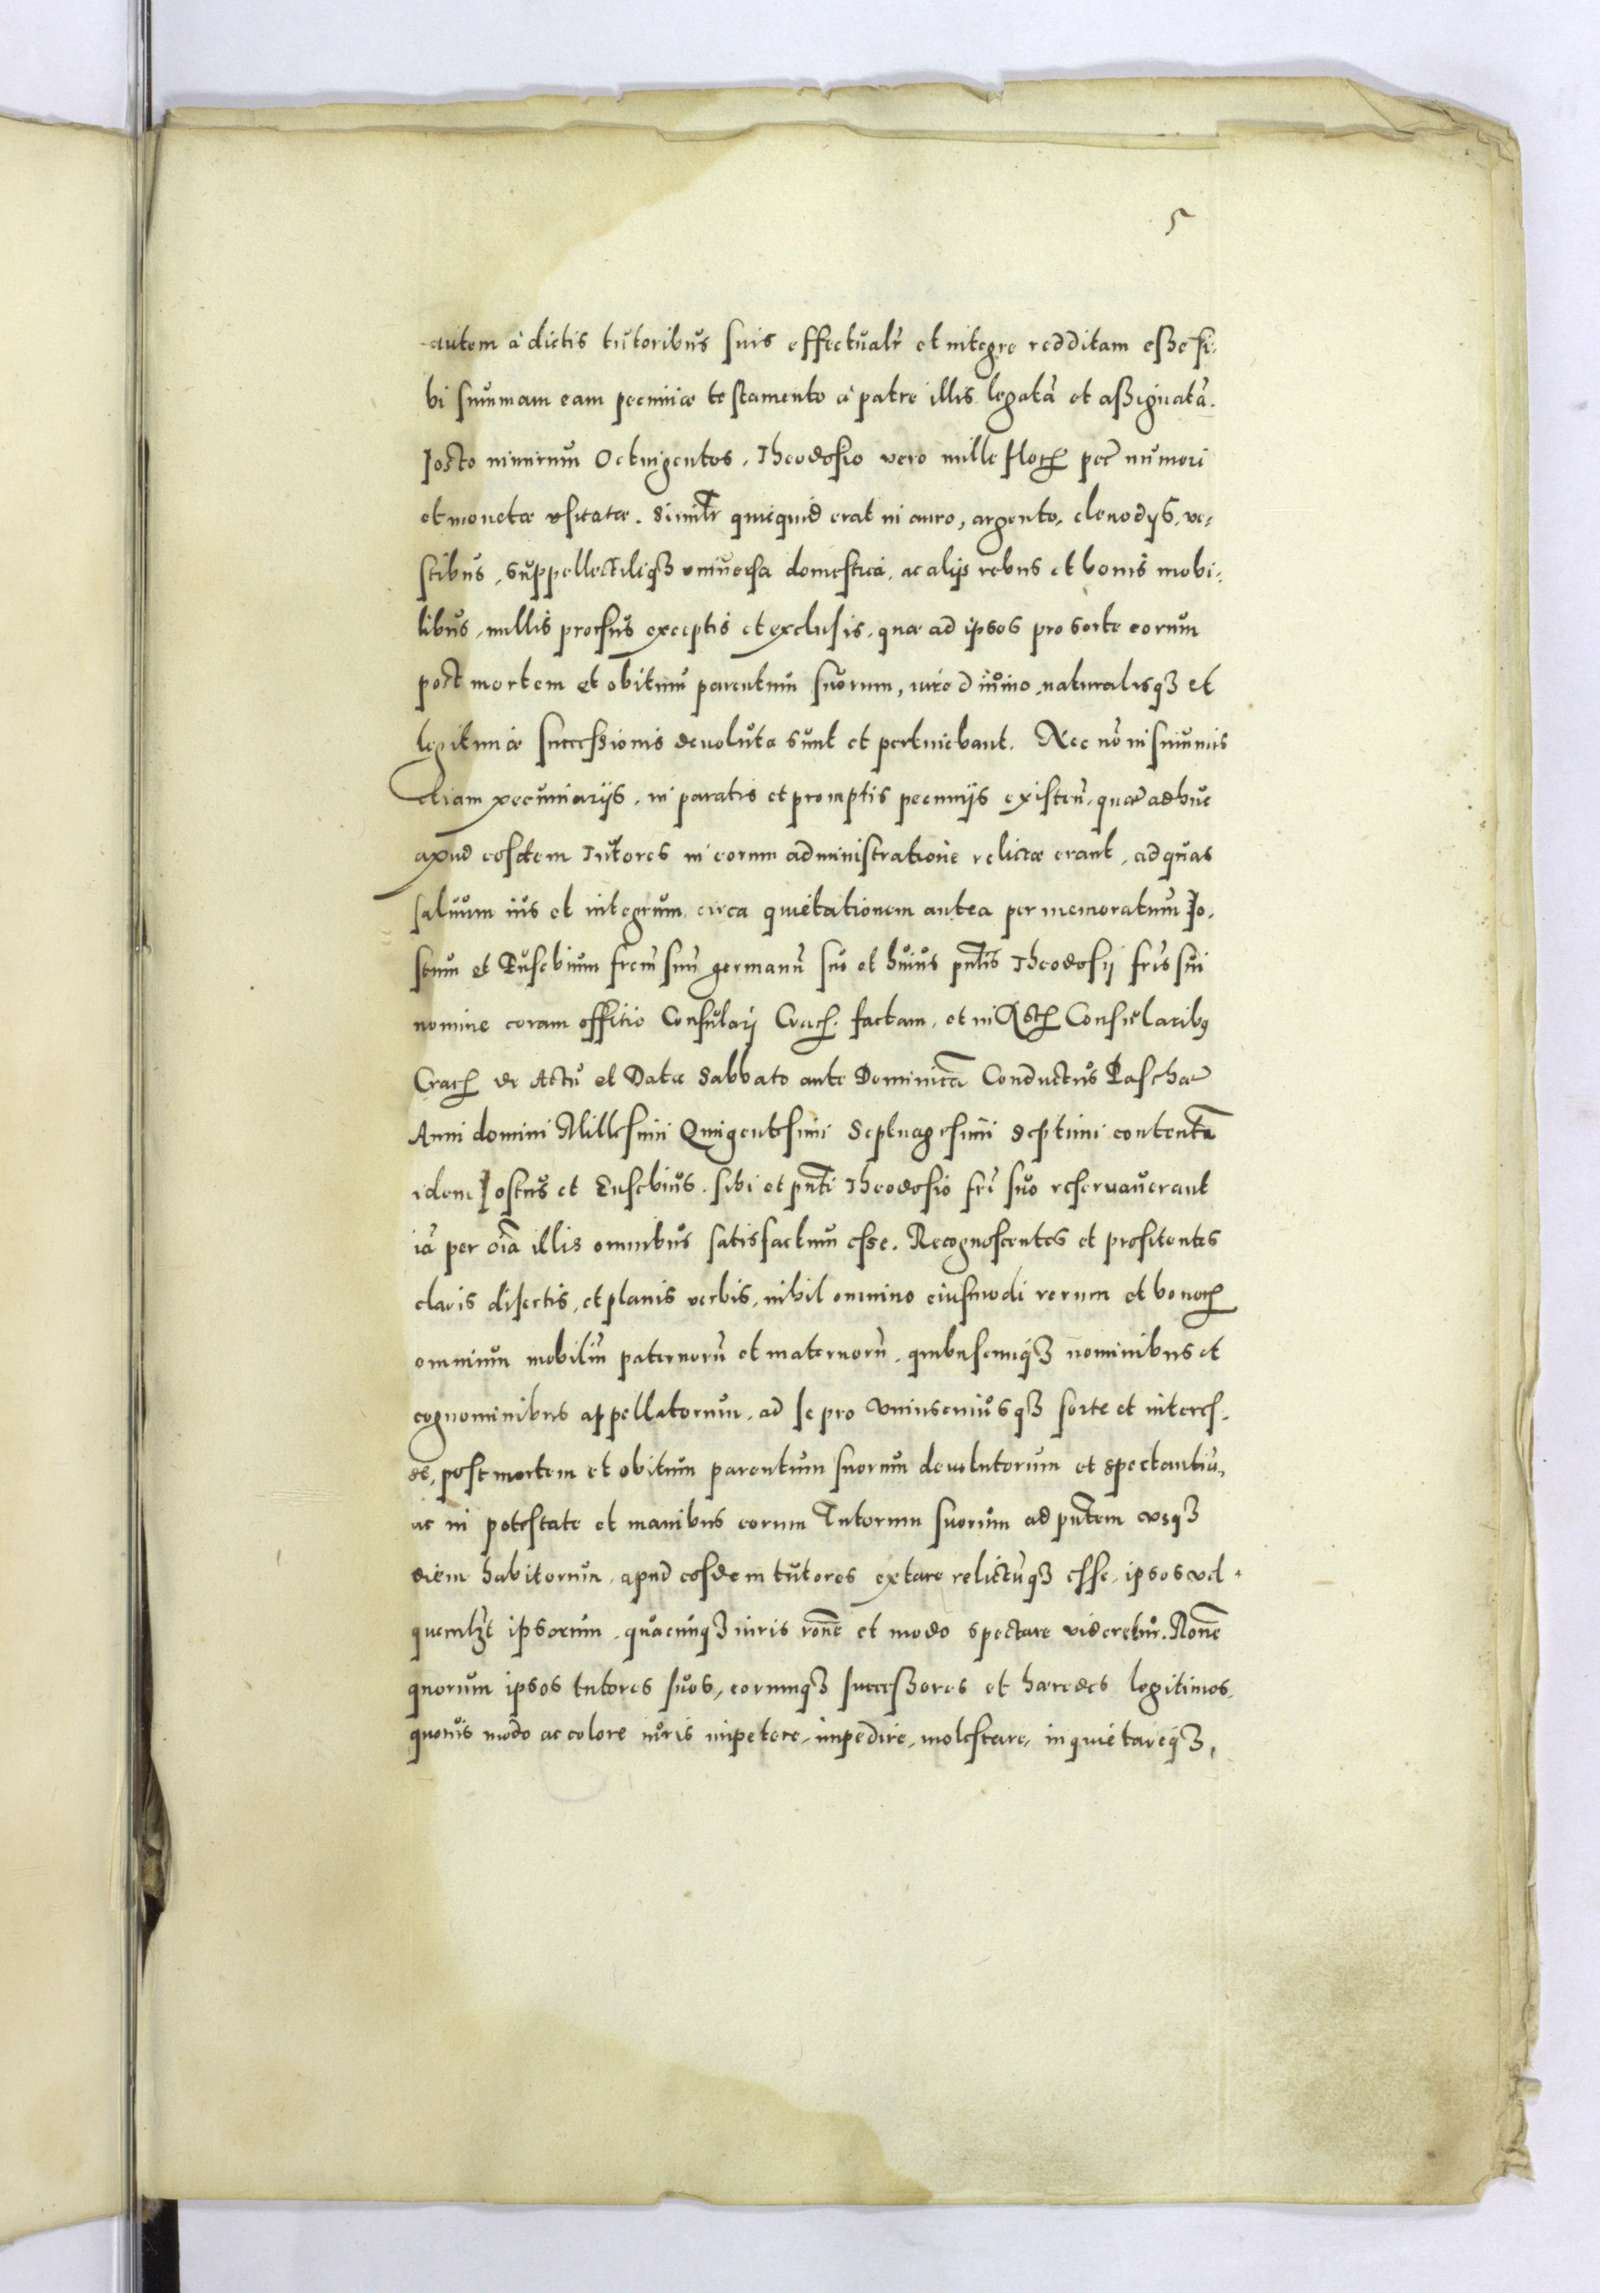 5
autem à dictis tutoribus suis effectualr̃ et integre redditam esse si-
bi summam eam pecuniæ testamento à patre illis legatã et assignatã.
Josto nimirum Octuigentos, Theodosio vero mille floꝝ pec̃ numeri
et monetæ usitatæ. Similr̃ quicquid erat in auro, argento, clenodijs, ve-
stibus, suppellectiliqȝ universa domestica, ac alijs rebus et bonis mobi-
libus, nullis prorsus exceptis et exclusis, quæ ad ipsos pro sorte eorum
post mortem et obitum parentum suorum, iure divino, naturalisqȝ et
legitimæ successionis devoluta sunt et pertinebant. Nec nõ in summis
etiam pecuniarijs, in paratis et promptis pecunijs existeñ, quæ adhuc
apud eosdem Tutores in eorum administratione relictæ erant, ad quas
salvum ius et integrum circa quietationem antea per memoratum Jo-
stum et Eusebium frem̃ suũ germanũ suo et huius pñtis Theodosij fris̃ sui
nomine coram offitio Consulari Cracꝝ. factam, et in Actꝝ Consularibꝰ
Cracꝝ de Actu et Data Sabbato ante Dominicã Conductus Paschæ
Anni domini Millesimi Quigentesimi Septuagesimi septimi contentã
idem Jostus et Eusebius, sibi et pñti Theodosio fri̇̃ suo reservaverant
iã per oĩa illis omnibus satisfactum esse. Recognoscentes et profitentes
claris disertis, et planis verbis, nihil omnino eiusmodi rerum et bonoꝝ
omnium mobiliũ paternorũ et maternorũ, quibuscunqȝ nominibus et
cognominibus appellatorum, ad se pro uniuscuiusqȝ sorte et interes-
se, post mortem et obitum parentum suorum devolutorum et spectantiũ,
ac in potestate et manibus eorum Tutorum suorum ad pñtem usqȝ
diem habitorum, apud eosdem tutores extare relictũqȝ esse, ipsos vel
quemlȝt ipsorum, quacunqȝ iuris rõne et modo spectare videretur. Rõne
quorum ipsos tutores suos, eorumqȝ successores et hæredes legitimos,
quovis modo ac colore iuris impetere, impedire, molestare, inquietareqȝ,